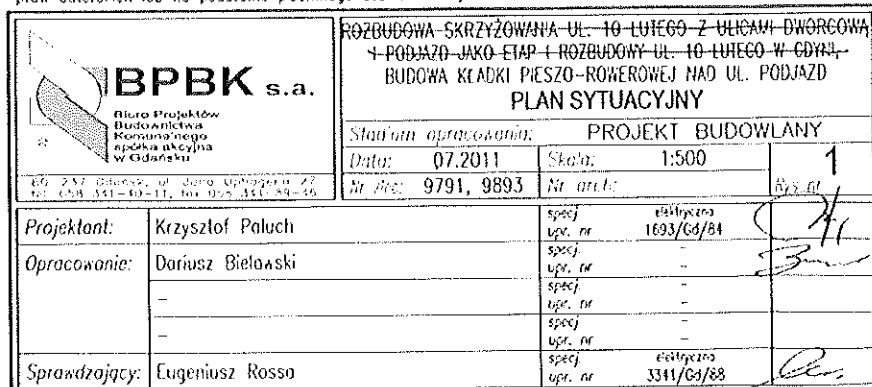 BPBK s.a.
Biuro Projektów
Budownictwa
Komunalnego
spółka akcyjna
w Gdańsku
ROZBUDOWA SKRZYŻOWANIA UL. 10 LUTEGO Z ULICAMI DWORCOWĄ
I PODJAZD JAKO ETAP I ROZBUDOWY UL. 10 LUTEGO W GDYNI,
BUDOWA KŁADKI PIESZO-ROWEROWEJ NAD UL. PODJAZD
PLAN SYTUACYJNY
Stadium opracowania: PROJEKT BUDOWLANY
Data: 07.2011 Skala: 1:500 1
Nr zlec: 9791, 9893 Nr arch: Rys. nr
Projektant: Krzysztof Paluch specj. elektryczna
upr. nr 1693/Gd/84
Opracowanie: Dariusz Bielawski specj. -
upr. nr -
- specj. -
upr. nr -
- specj. -
upr. nr -
Sprawdzający: Eugeniusz Rosso specj. elektryczna
upr. nr 3341/Gd/88